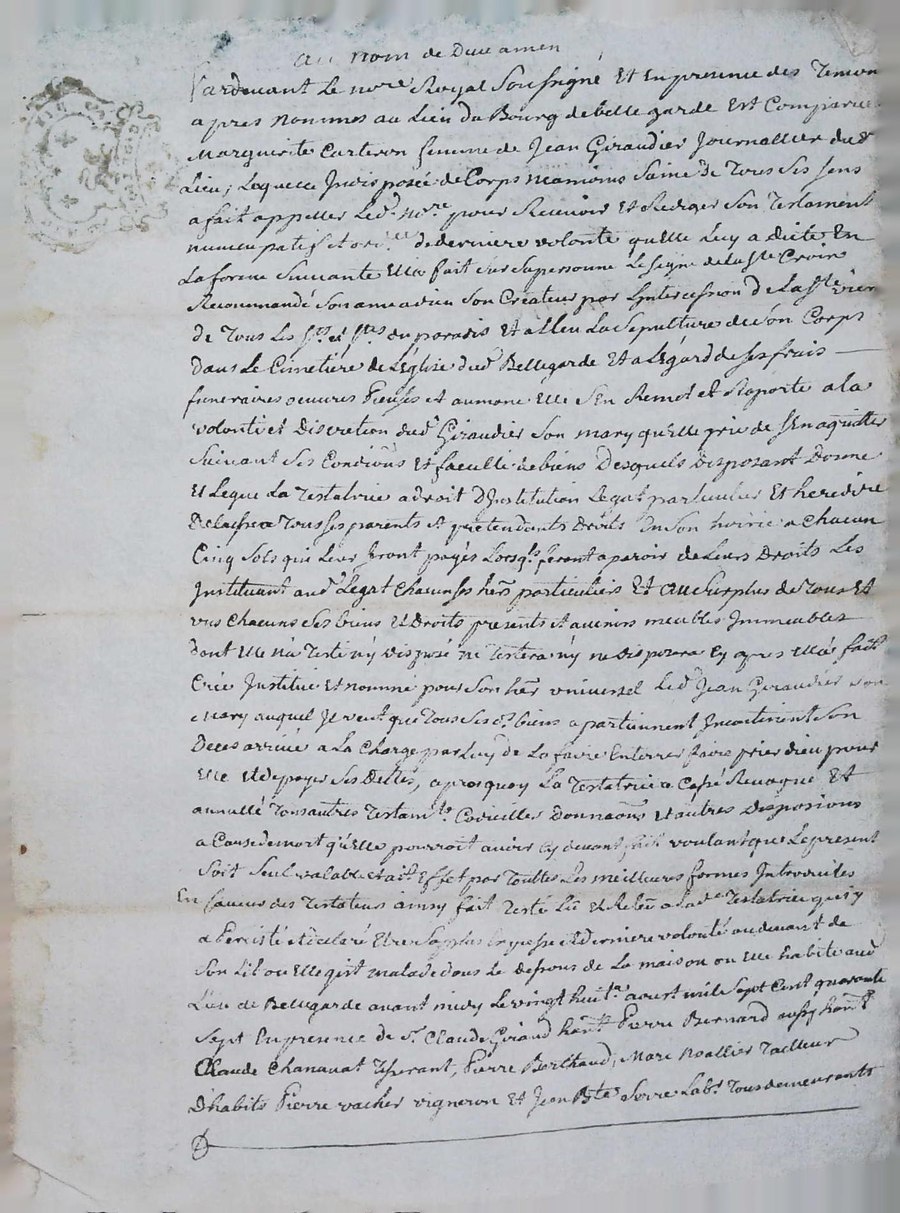 au nom de Dieu amen
Pardevant Le nore Royal Soussigné Et En presence des Temoin
apres nommés au Lieu du Bourg de belle garde Est Comparue
Marguerite Carteron femme de Jean Giraudier Journallier dud
Lieu, Lequelle Jndisposée de Corps neamoins Saine de Tous Ses sens
a fait appeller Led. nore pour Recevoir Et Rediger Son Testament
nuncupatif et de derniere volonté quelle Luy a dicté En
La forme Suivante Elle fait Sur Sa personne Le Signe de La Ste Croix
Recommandé Son ame a dieu Son Createur par Lintercession De La Ste vier
de Tous Les Sts et Stes du paradis Et a Elleu La Sepulture de Son Corps
Dans Le Cimetiere de Léglise dud Bellegarde Et a Légard de ses frais
funeraires oeuvres Pieuses et aumone Elle S'En Remet et Raporte a la
volonté et Discretion dud Giraudier Son mary quelle prie de S'En aquitter
Suivant Ses Condions Et faculté de biens Desquels disposant Donne
Et Legue La Testatrice a droit D'Jnstitution Legat particulier Et herediere
Delaissee a Tous ses parents et pretendants Droits En Son hoirie a Chacun
Cinq Sols qui Leur Seront payés Lorsqls feront aparoir de Leurs Droits Les
Jnstituant aud Legat Chacun Ses hers particuliers Et au Surplus de Tous Et
uns Chacuns Ses biens Et Droits presents et avenirs meubles Jmmeubles
dont Elle n'a Testé n'y disposé ne Testera n'y ne disposera Cy apres Ella fait
Crée Jnstitue et nommé pour Son her universel Led Jean Giraudier Son
Mary auquel Je veut que Tous Ses biens apartiennent Jncontinent Son
Deces arrivé a La Charge par Luy de La faire Enterrer faire prier dieu pour
Elle Et de payer Ses Dettes, apres quoy La Testatrice a Cassé Revoqué Et
annullé Tous autres Testamts Codicilles Donnaons et autres Disposions
a Cause de mort qu'Elle pourroit avoir Cy devant fait voulant que Le present
Soit Seul valable et ait Effet par Touttes Les meilleures formes Jntroduites
En faveur des Testateurs ainsy fait Testé Lu Et Relu a Lade Testatrice qui y
a Persisté et declaré Etre Sa plus Expresse et derniere volonté au devant de
Son Lit ou Elle gist malade dans Le dessous de La maison ou Elle habite aud
Lieu de Bellegarde avant midy Le vingt huit aoust mil Sept Cent quarante
Sept En presence de Sr. Claude Giraud hant Pierre Bernard aussy hant
Claude Chanavat Tisserant, Pierre Berthaud, Marc Noallier Tailleur
D'habits Pierre vacher vigneron Et Jean Bte Serre Labr Tous demeurants